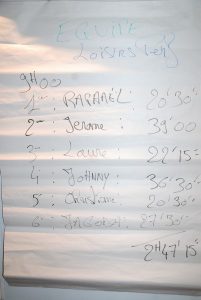 EQUIPE
Loisirs Lens
9H00
1 - RAPHAËL : 20'30"
2 - Jerome : 39'00
3 - Laure : 22'15"
4 - JOHNNY : 36'30"
5 - Christiane : 20'30"
6 - : 27'30"
2H47'15"